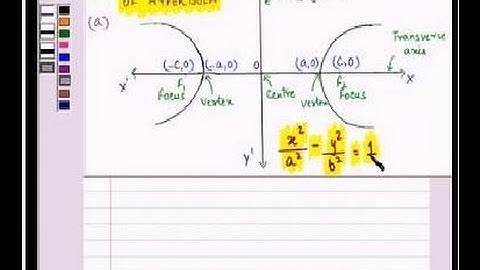 OF HYPERBOLA
(a)
Transverse
axis
(-c,0) (-a,0) 0 (a,0) (c,0)
x' x
F₁ F₂
focus vertex Centre vertex focus
x²/a² - y²/b² = 1
y'